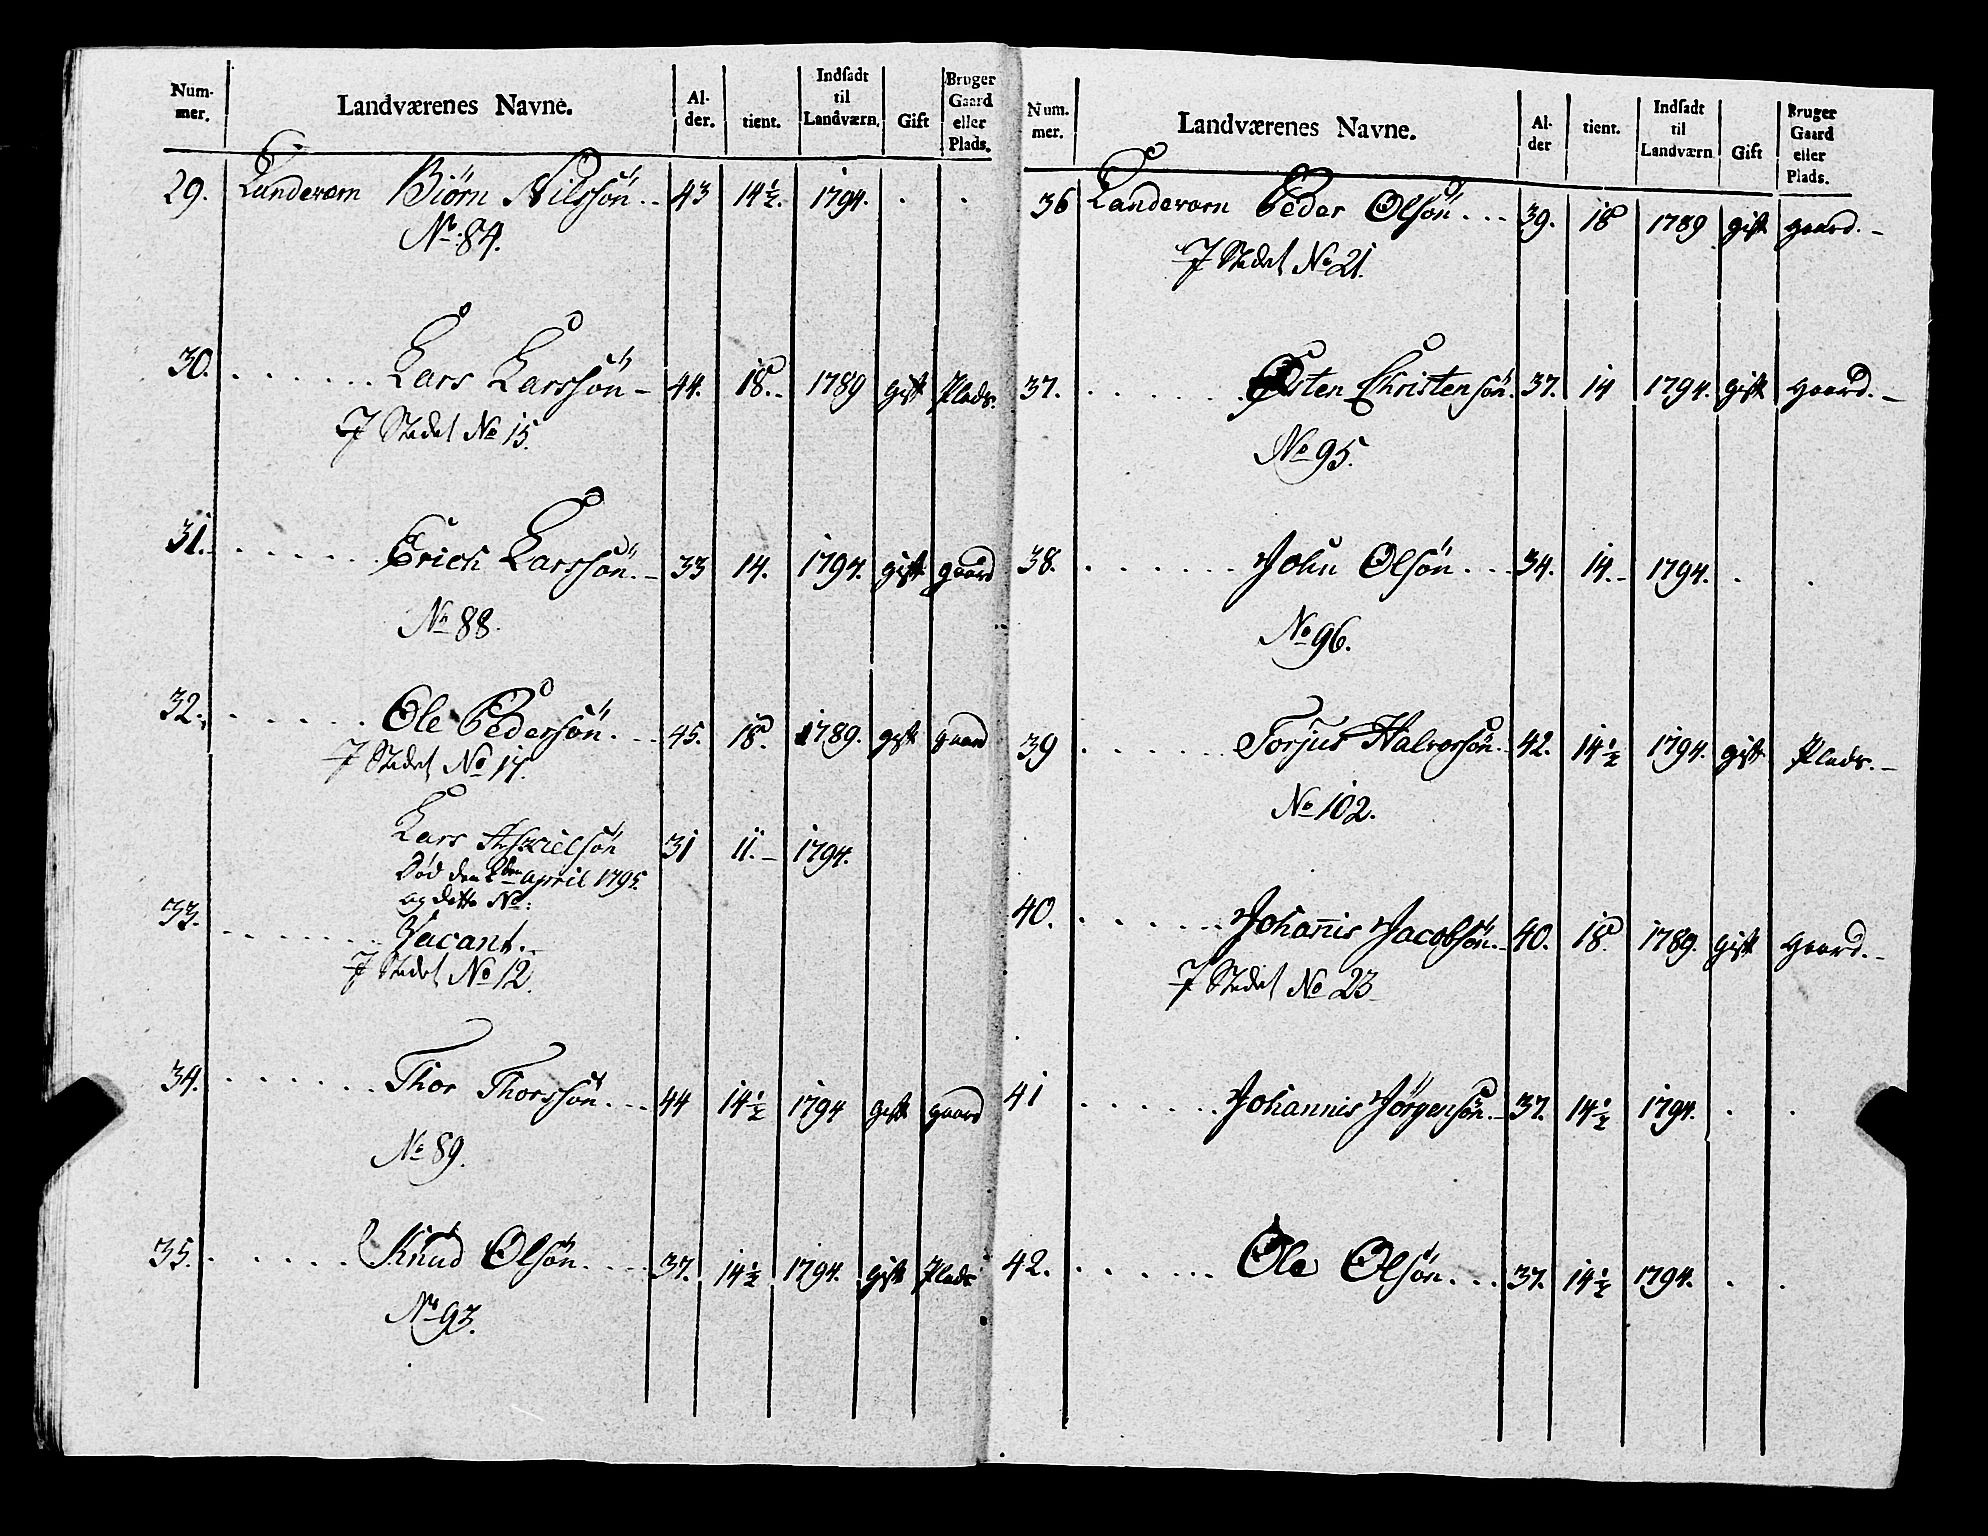 Num-
mer.
Landværenes Navne.
Al-
der.
tient.
Indsadt
til
Landværn.
Gift
Bruger
Gaard
eller
Plads.
29. Landevern Biørn Nilssön . . 43 14½. 1794. . .
No. 84.
30. . . . . . . Lars Larssön – 44. 18. 1789 gift Plads.
J Stedet No 15.
31. . . . . . . Erich Larssön. – 33 14. 1794. gift gaard
No 88.
32. . . . . . . Ole Pedersön. . . 45. 18. 1789. gift gaard
J Stedet No 17.
Lars Askielsön 31 11. – 1794.
Död den 2den April 1795.
og dette No:
33. . . . . . . Vacant.
J Stedet No 12.
34. . . . . . . Thor Thorssön. . . 44 14½ 1794 gift gaard
No 89.
35. . . . . . Knud Olsön. . . . 37. 14½ 1794. gift Plads
No 93.
Num.
mer.
Landværenes Navne.
Al-
der
tient.
Indsadt
til
Landværn
Gift
Bruger
Gaard
eller
Plads.
36 Landevern Peder Olsön . . . 39. 18 1789 gift gaard. –
J Stedet No 21.
37. . . . . . . Østen Christensön. 37. 14 1794. gift gaard. –
No 95.
38. . . . . . . John Olsön . . . 34. 14. – 1794. . .
No 96.
39 . . . . . . Torjus Halvorsön. 42. 14½ 1794. gift Plads. –
No 102.
40. . . . . . . Johannis Jacobsön. – 40. 18. 1789. gift gaard. –
J Stedet No 23
41 . . . . . . Johannis Jörgensön. – 37. 14½ 1794. . .
42. . . . . . . Ole Olsön. . . 37. 14½ 1794. . .